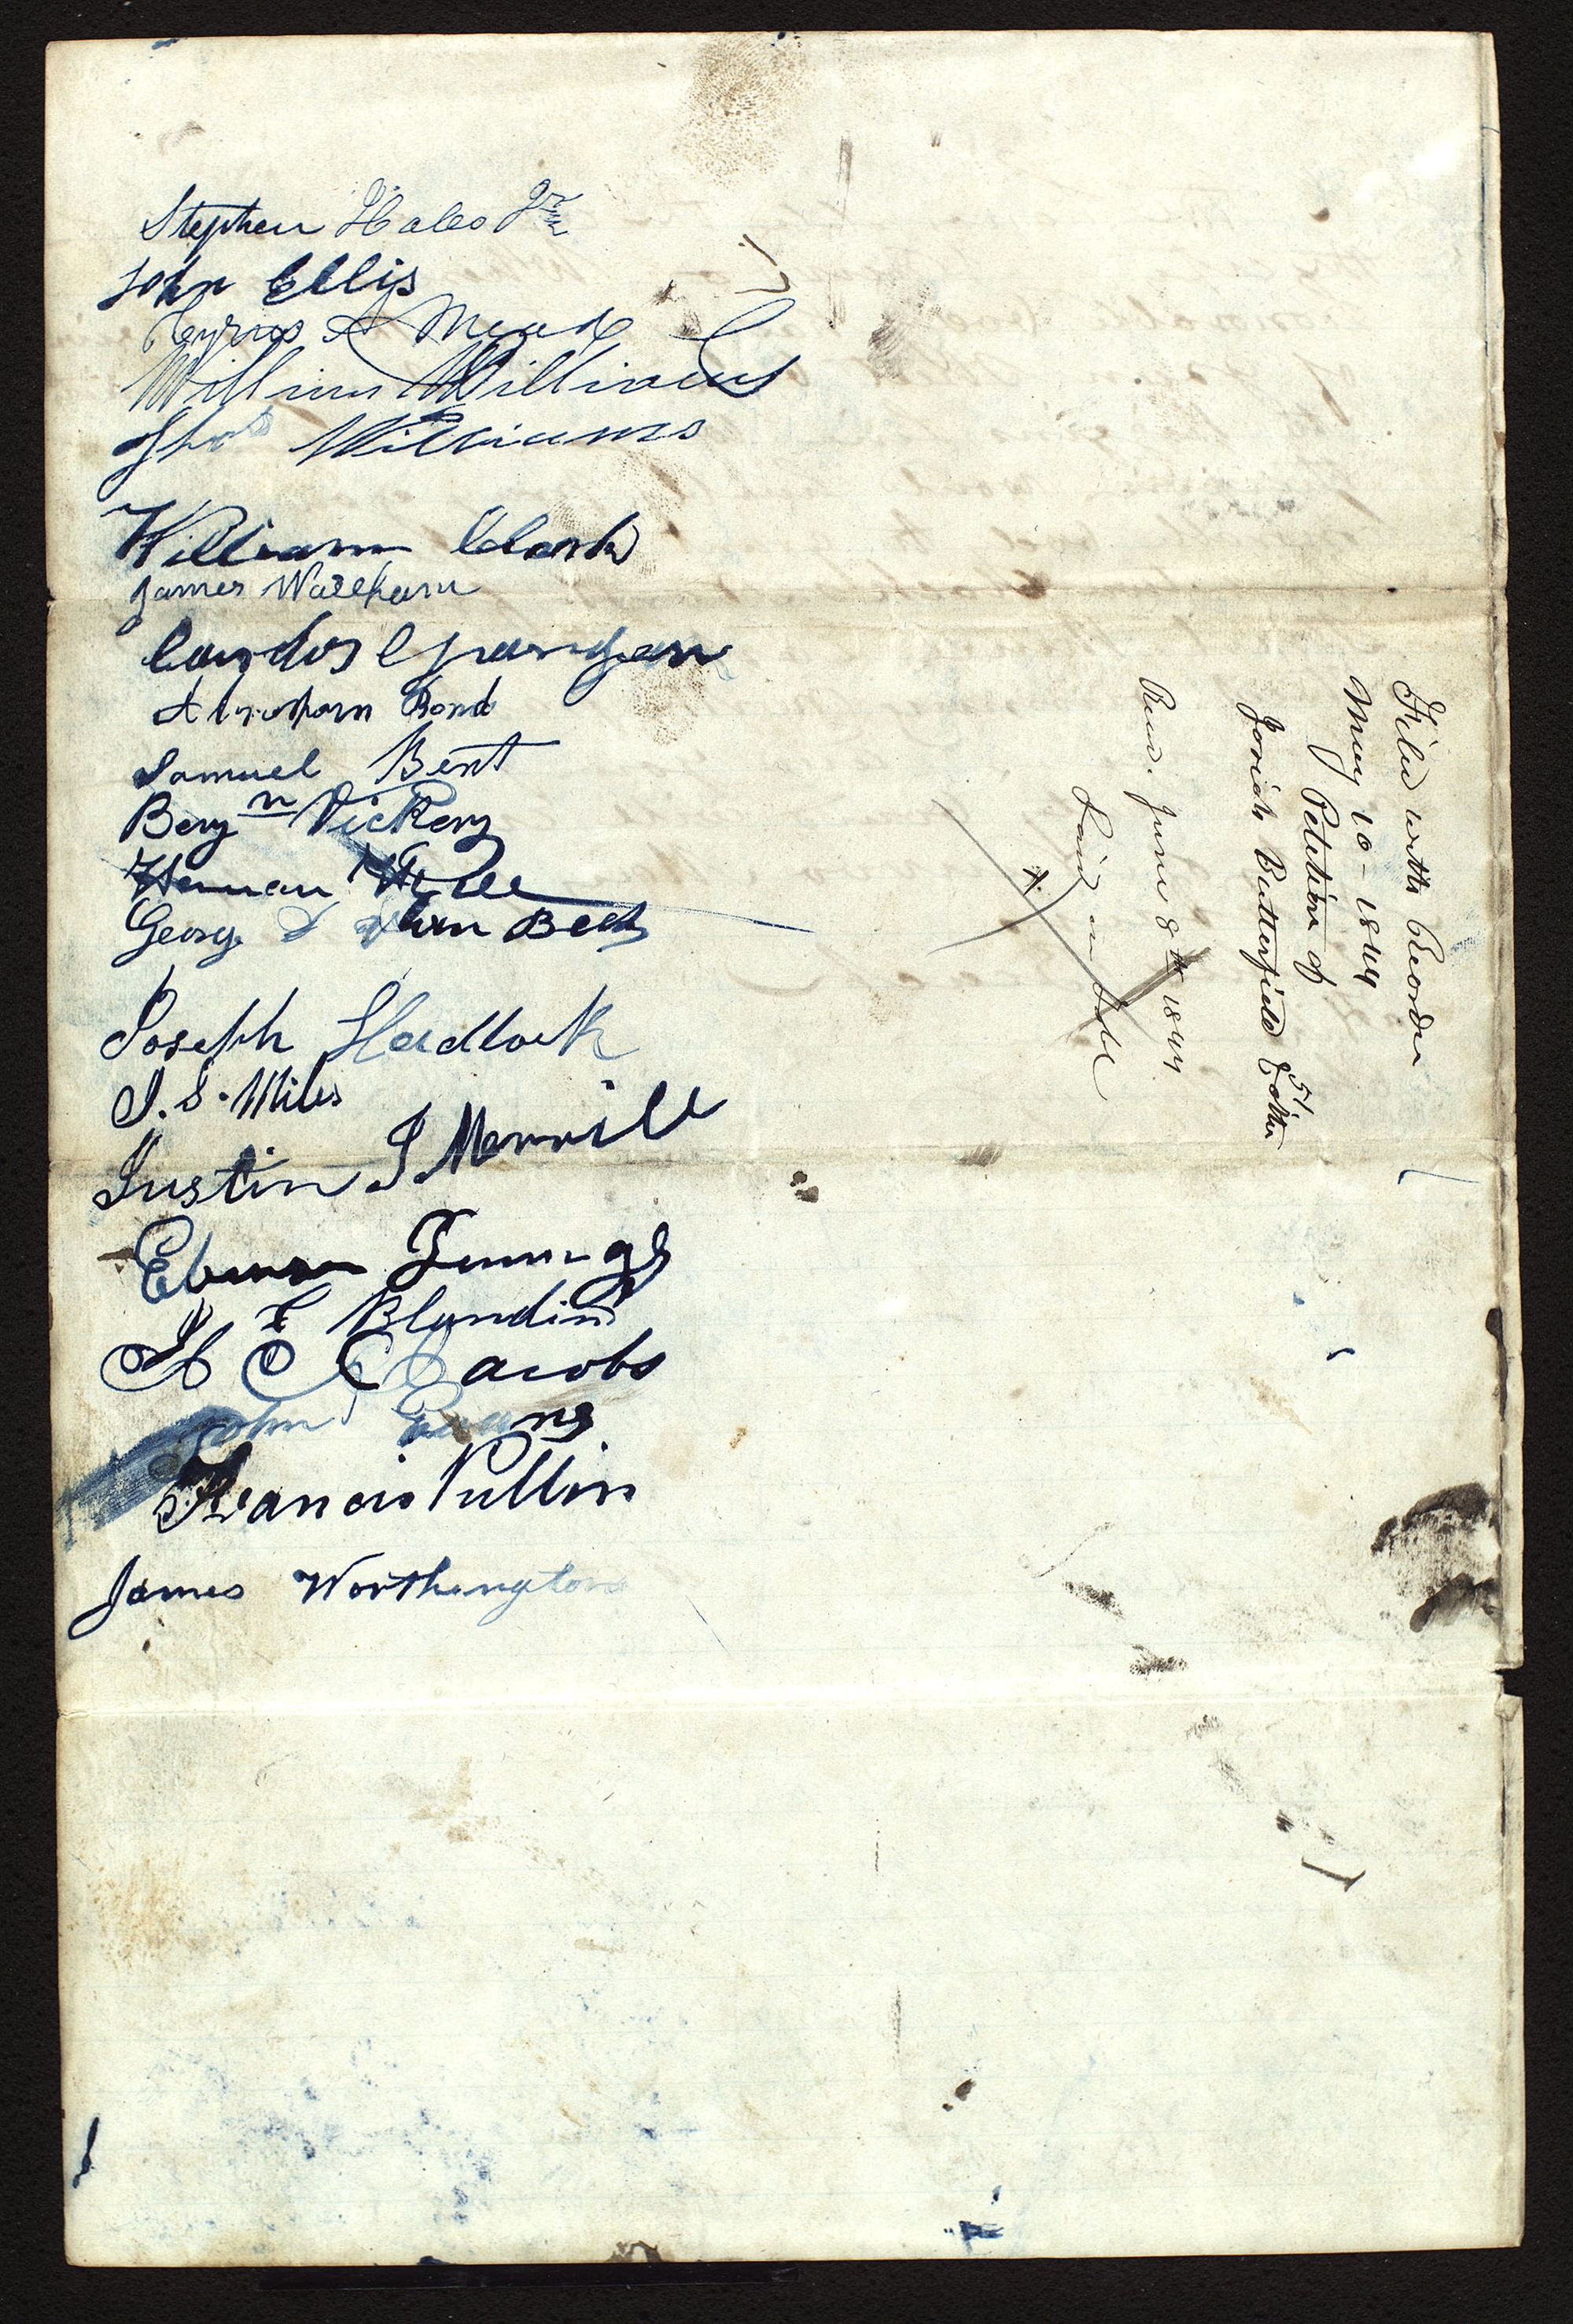 Stephen Hales Jr
John Ellis
Cyrus A Mead
William Williams
Thos Williams
William Clark
James Wareham
Carlos Granger
Abraham Bond
Samuel Bent
Benjn Vickery
Heman
George D Van Beck
Joseph Hadlock
I. S. Miles
Justin J Merrill
Ebenezer Jennings
Blandin
H C Jacobs
John Evans
Francis Pullin
James Worthington
Filed with Recorder
May 10 - 1844
Petition of
Josiah Butterfield & 51 other
Read. June 8th 1844
Laid on table